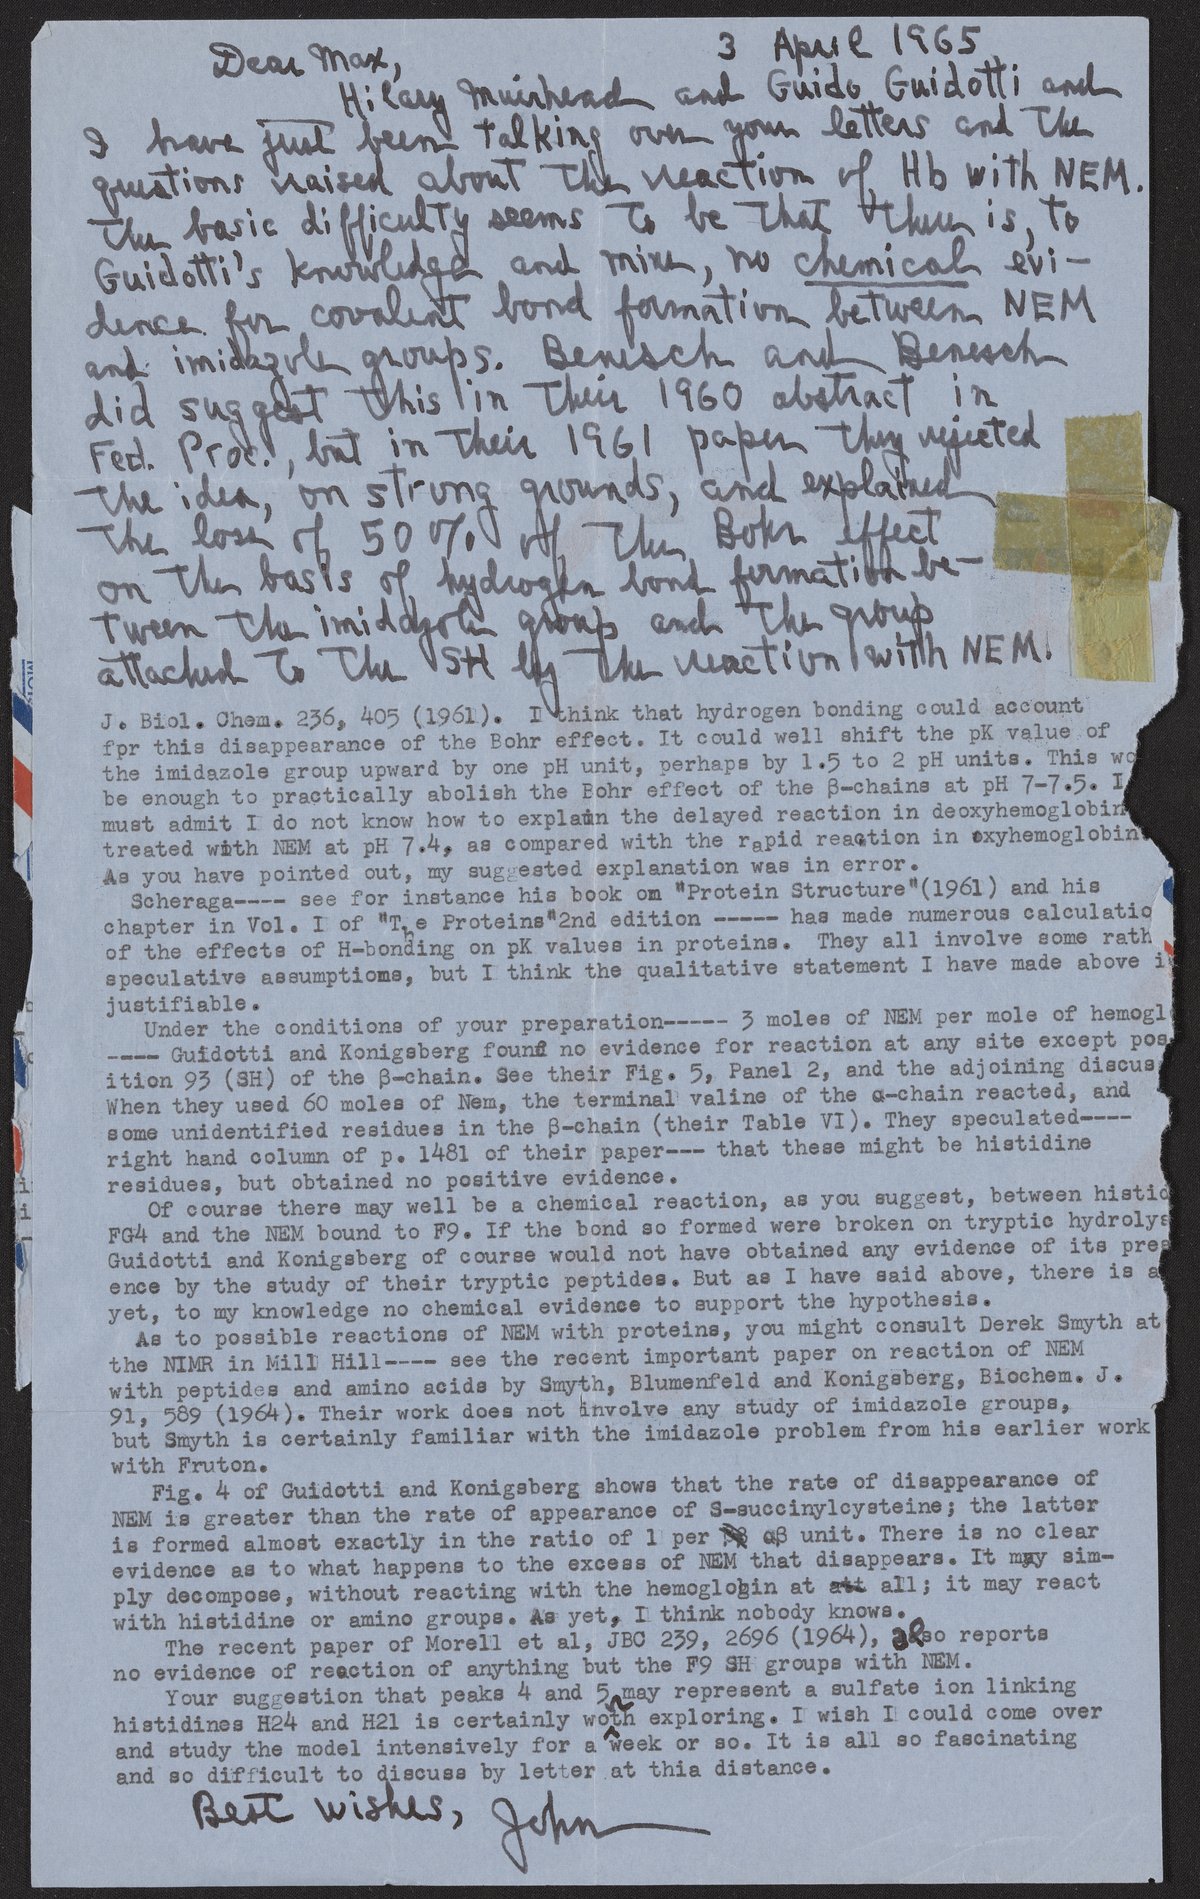 3 April 1965
Dear Max,
Hilary Muirhead and Guido Guidotti and
I have just been talking over your letters and the
questions raised about the reaction of Hb with NEM.
The basic difficulty seems to be that there is, to
Guidotti's knowledge and mine, no chemical evi-
dence for covalent bond formation between NEM
and imidazole groups. Benesch and Benesch
did suggest this in their 1960 abstract in
Fed. Proc., but in their 1961 paper they rejected
the idea, on strong grounds, and explained
the loss of 50% of the Bohr effect
on the basis of hydrogen bond formation be-
tween the imidazole group and the group
attached to the SH by the reaction with NEM.
J. Biol. Chem. 236, 405 (1961). I think that hydrogen bonding could account
fpr this disappearance of the Bohr effect. It could well shift the pK value of
the imidazole group upward by one pH unit, perhaps by 1.5 to 2 pH units. This wo
be enough to practically abolish the Bohr effect of the β-chains at pH 7-7.5. I
must admit I do not know how to explain the delayed reaction in deoxyhemoglobin
treated with NEM at pH 7.4, as compared with the rapid reaction in oxyhemoglobin.
As you have pointed out, my suggested explanation was in error.
Scheraga---- see for instance his book on "Protein Structure"(1961) and his
chapter in Vol. I of "The Proteins"2nd edition ----- has made numerous calculatio
of the effects of H-bonding on pK values in proteins. They all involve some rath
speculative assumptions, but I think the qualitative statement I have made above i
justifiable.
Under the conditions of your preparation----- 3 moles of NEM per mole of hemogl
---- Guidotti and Konigsberg found no evidence for reaction at any site except pos
ition 93 (SH) of the β-chain. See their Fig. 5, Panel 2, and the adjoining discus
When they used 60 moles of Nem, the terminal valine of the α-chain reacted, and
some unidentified residues in the β-chain (their Table VI). They speculated----
right hand column of p. 1481 of their paper--- that these might be histidine
residues, but obtained no positive evidence.
Of course there may well be a chemical reaction, as you suggest, between histid
FG4 and the NEM bound to F9. If the bond so formed were broken on tryptic hydrolys
Guidotti and Konigsberg of course would not have obtained any evidence of its pres
ence by the study of their tryptic peptides. But as I have said above, there is a
yet, to my knowledge no chemical evidence to support the hypothesis.
As to possible reactions of NEM with proteins, you might consult Derek Smyth at
the NIMR in Mill Hill---- see the recent important paper on reaction of NEM
with peptides and amino acids by Smyth, Blumenfeld and Konigsberg, Biochem. J.
91, 589 (1964). Their work does not involve any study of imidazole groups,
but Smyth is certainly familiar with the imidazole problem from his earlier work
with Fruton.
Fig. 4 of Guidotti and Konigsberg shows that the rate of disappearance of
NEM is greater than the rate of appearance of S-succinylcysteine; the latter
is formed almost exactly in the ratio of 1 per αβ unit. There is no clear
evidence as to what happens to the excess of NEM that disappears. It may sim-
ply decompose, without reacting with the hemoglobin at att all; it may react
with histidine or amino groups. As yet, I think nobody knows.
The recent paper of Morell et al, JBC 239, 2696 (1964), also reports
no evidence of reaction of anything but the F9 SH groups with NEM.
Your suggestion that peaks 4 and 5 may represent a sulfate ion linking
histidines H24 and H21 is certainly worth exploring. I wish I could come over
and study the model intensively for a week or so. It is all so fascinating
and so difficult to discuss by letter at thia distance.
Best wishes, John